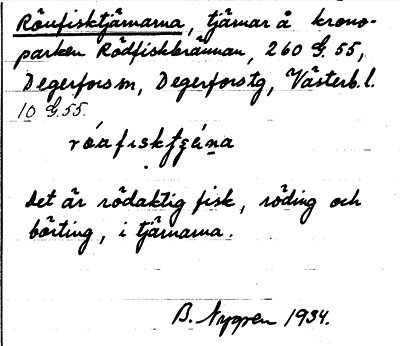 Röufisktjärnarna, tjärnar å krono-
parken Rödfiskbrännan, 260 G. 55,
Degerfors sn, Degerfors tg, Västerb. l.
10 G. 55.
róafisktʂéna
det är rödaktig fisk, röding och
börting, i tjärnarna.
B. Nygren 1934.